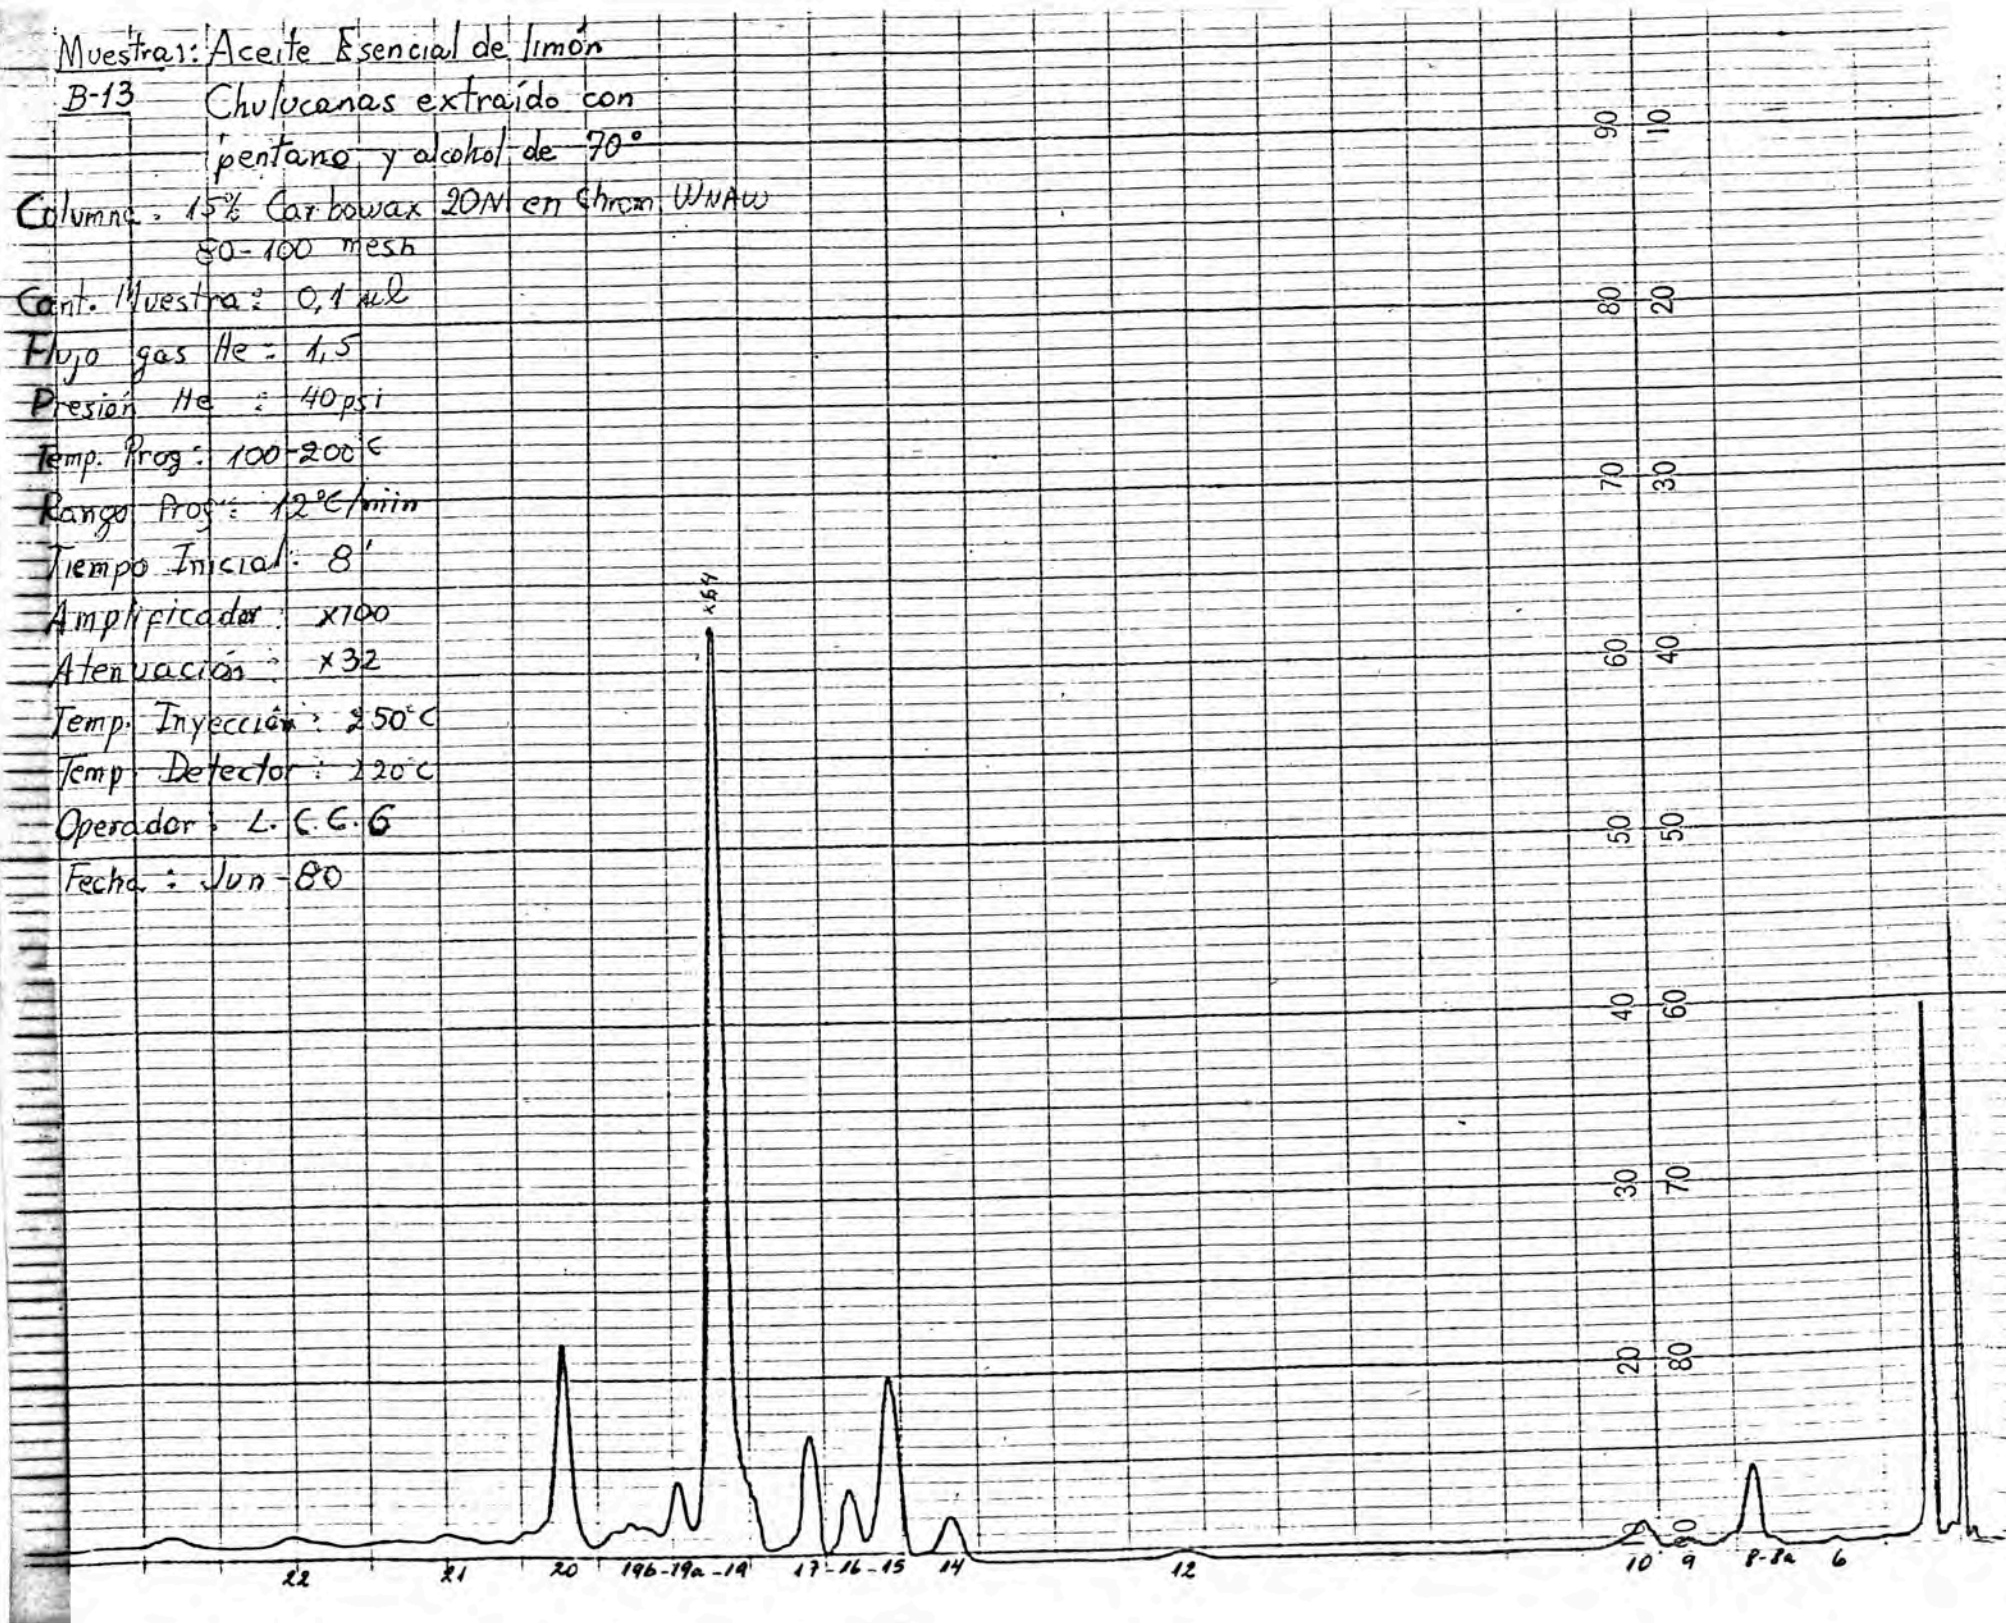 Muestra: Aceite Esencial de limón
B-13 Chulucanas extraído con
pentano y alcohol de 70°
Columna: 15% Carbowax 20M en Chrom WNAW
80-100 mesh
Cant. Muestra: 0,1 µl
Flujo gas He: 1,5
Presión He : 40 psi
Temp. Prog: 100-200°C
Rango Prog: 12°C/min
Tiempo Inicial: 8'
Amplificador: x100
Atenuación: x32
Temp. Inyección: 250°C
Temp Detector: 220°C
Operador: L.C.C.G
Fecha: Jun-80
x64
90 10
80 20
70 30
60 40
50 50
40 60
30 70
20 80
22 21 20 19b-19a-19 17-16-15 14 12 10 9 8-8a 6